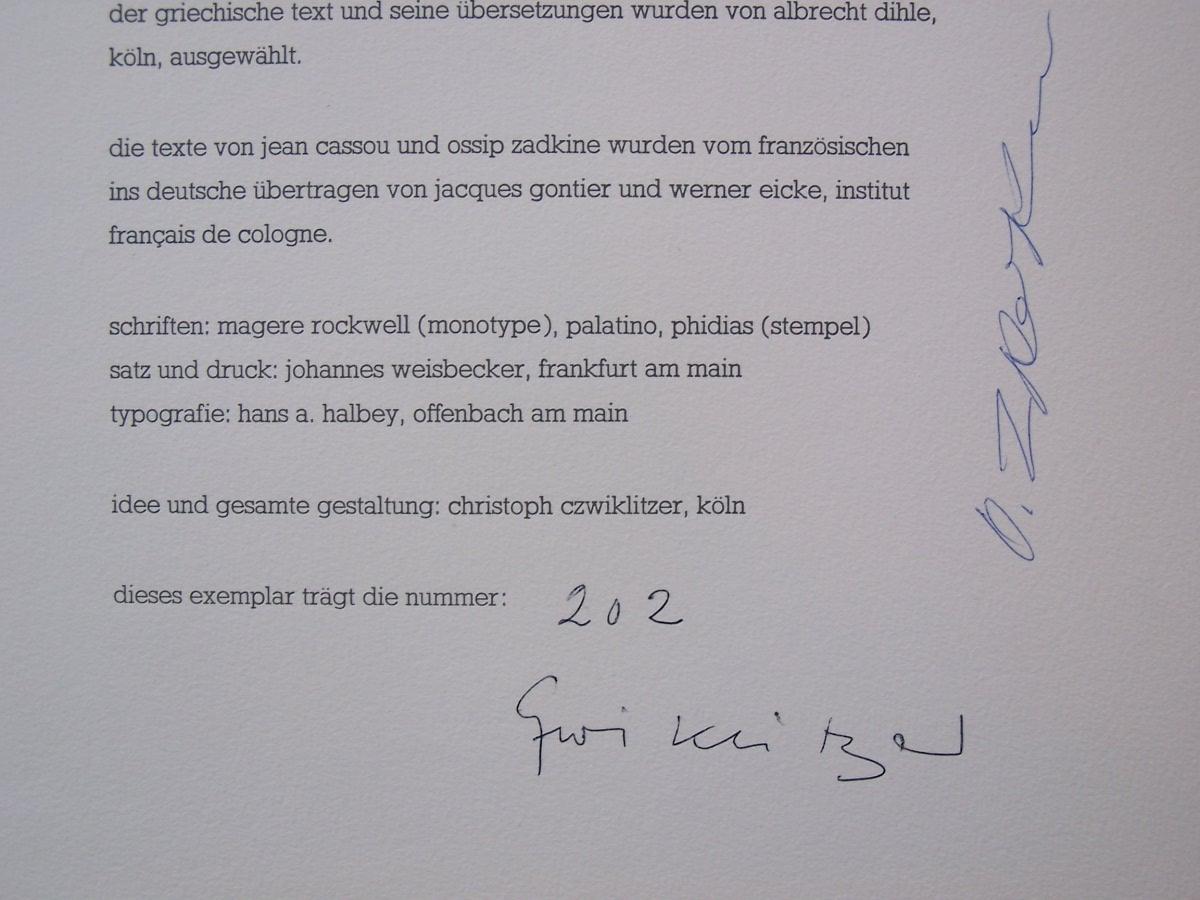 der griechische text und seine übersetzungen wurden von albrecht dihle,
köln, ausgewählt.
die texte von jean cassou und ossip zadkine wurden vom französischen
ins deutsche übertragen von jacques gontier und werner eicke, institut
français de cologne.
schriften: magere rockwell (monotype), palatino, phidias (stempel)
satz und druck: johannes weisbecker, frankfurt am main
typografie: hans a. halbey, offenbach am main
idee und gesamte gestaltung: christoph czwiklitzer, köln
dieses exemplar trägt die nummer: 202
Czwiklitzer
O. Zadkine